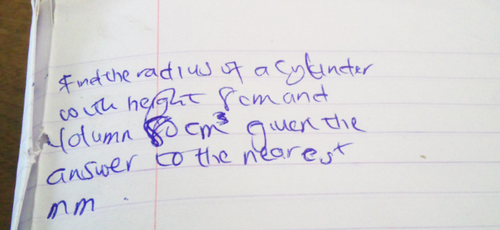 Find the radius of a cylinder
with height 8cm and
Volumn 80 cm³ given the
answer to the nearest
mm.